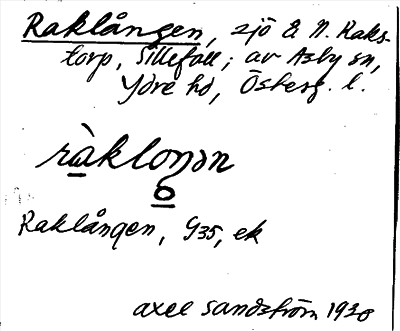 Raklången, sjö & N. Raks-
torp, Sillefall; av Asby sn,
Ydre hd, Österg. l.
ràkloŋən
o
Raklången, G35, ek
Axel Sandström 1930